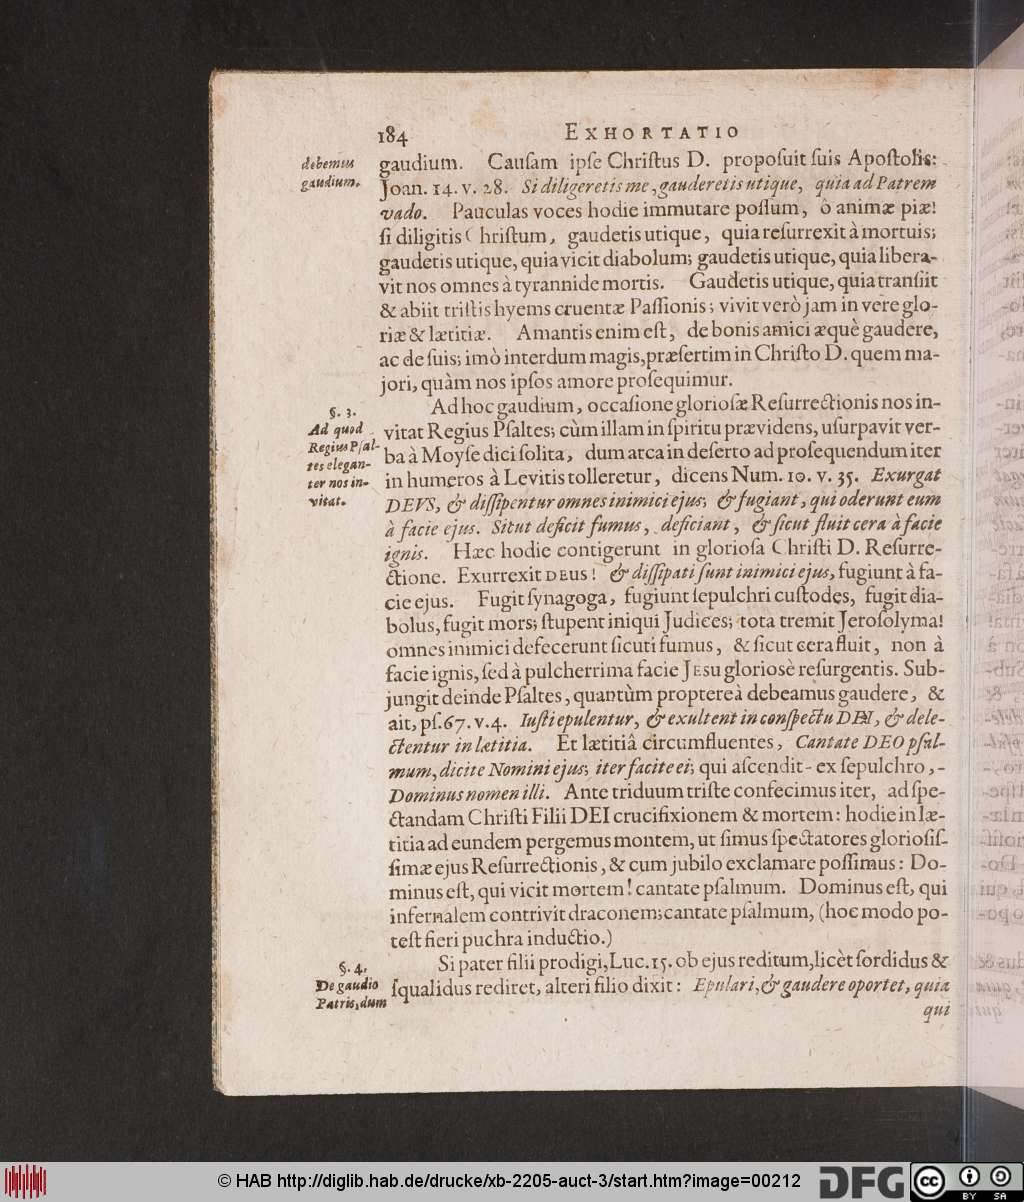 184 EXHORTATIO
debemus
gaudium.
gaudium. Cauſam ipſe Chriſtus D. propoſuit ſuis Apoſtolis:
Joan. 14. v. 28. Si diligeretis me, gauderetis utique, quia ad Patrem
vado. Pauculas voces hodie immutare poſſum, ô animæ piæ!
ſi diligitis Chriſtum, gaudetis utique, quia reſurrexit à mortuis;
gaudetis utique, quia vicit diabolum; gaudetis utique, quia libera-
vit nos omnes à tyrannide mortis. Gaudetis utique, quia tranſiit
& abiit triſtis hyems cruentæ Paſſionis; vivit verò jam in vere glo-
riæ & lætitiæ. Amantis enim eſt, de bonis amici æquè gaudere,
ac de ſuis; imò interdum magis, præſertim in Chriſto D. quem ma-
jori, quàm nos ipſos amore proſequimur.
§. 3.
Ad quod
Regius Pſal-
tes elegan-
ter nos in-
vitat.
Ad hoc gaudium, occaſione glorioſæ Reſurrectionis nos in-
vitat Regius Pſaltes; cùm illam in ſpiritu prævidens, uſurpavit ver-
ba à Moyſe dici ſolita, dum arca in deſerto ad proſequendum iter
in humeros à Levitis tolleretur, dicens Num. 10. v. 35. Exurgat
DEVS, & diſſipentur omnes inimici ejus; & fugiant, qui oderunt eum
à facie ejus. Sicut deficit fumus, deficiant, & ſicut fluit cera à facie
ignis. Hæc hodie contigerunt in glorioſa Chriſti D. Reſurre-
ctione. Exurrexit DEUS! & diſſipati ſunt inimici ejus, fugiunt à fa-
cie ejus. Fugit ſynagoga, fugiunt ſepulchri cuſtodes, fugit dia-
bolus, fugit mors; ſtupent iniqui Judices; tota tremit Jeroſolyma!
omnes inimici defecerunt ſicuti fumus, & ſicut cera fluit, non à
facie ignis, ſed à pulcherrima facie JESU glorioſè reſurgentis. Sub-
jungit deinde Pſaltes, quantùm proptereà debeamus gaudere, &
ait, pſ. 67. v. 4. Iuſti epulentur, & exultent in conſpectu DEI, & dele-
ctentur in lætitia. Et lætitiâ circumfluentes, Cantate DEO pſal-
mum, dicite Nomini ejus; iter facite ei; qui aſcendit - ex ſepulchro, -
Dominus nomen illi. Ante triduum triſte confecimus iter, ad ſpe-
ctandam Chriſti Filii DEI crucifixionem & mortem: hodie in læ-
titia ad eundem pergemus montem, ut ſimus ſpectatores glorioſiſ-
ſimæ ejus Reſurrectionis, & cum jubilo exclamare poſſimus: Do-
minus eſt, qui vicit mortem! cantate pſalmum. Dominus eſt, qui
infernalem contrivit draconem; cantate pſalmum, (hoc modo po-
teſt fieri puchra inductio.)
§. 4.
De gaudio
Patris, dum
Si pater filii prodigi, Luc. 15. ob ejus reditum, licèt ſordidus &
ſqualidus rediret, alteri filio dixit: Epulari, & gaudere oportet, quia
qui
© HAB http://diglib.hab.de/drucke/xb-2205-auct-3/start.htm?image=00212
DFG
cc BY SA